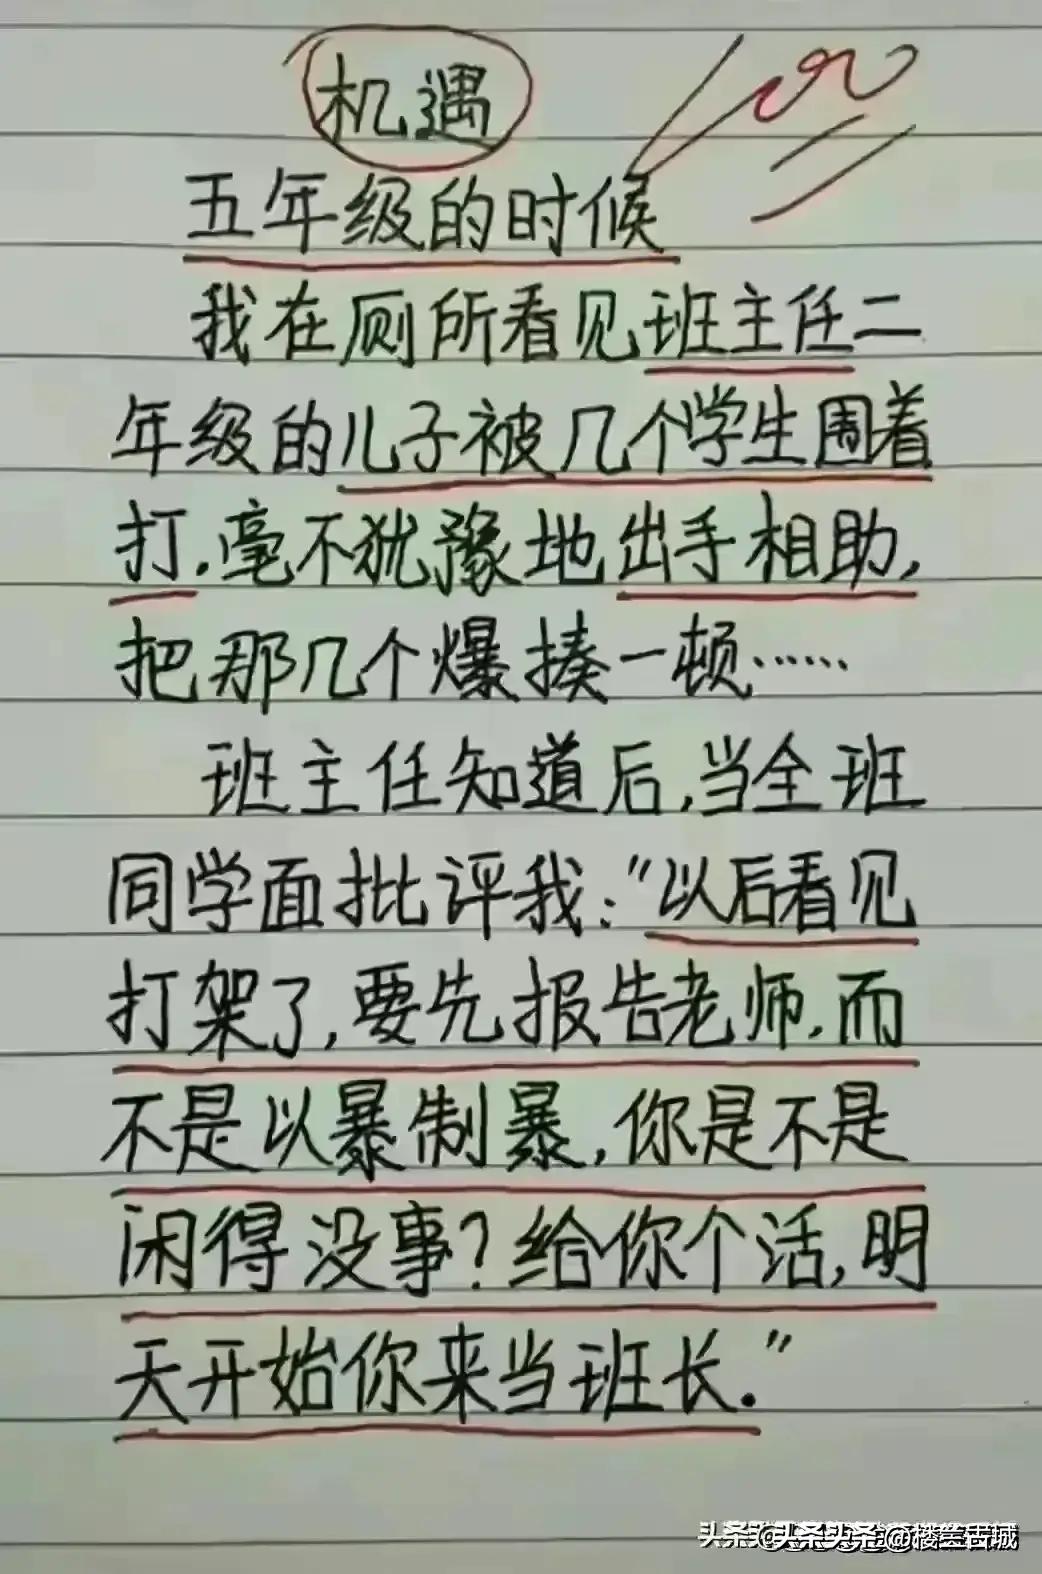 机遇
100
五年级的时候
我在厕所看见班主任二
年级的儿子被几个学生围着
打.毫不犹豫地出手相助,
把那几个爆揍一顿……
班主任知道后,当全班
同学面批评我:"以后看见
打架了,要先报告老师,而
不是以暴制暴,你是不是
闲得没事?给你个活,明
天开始你来当班长."